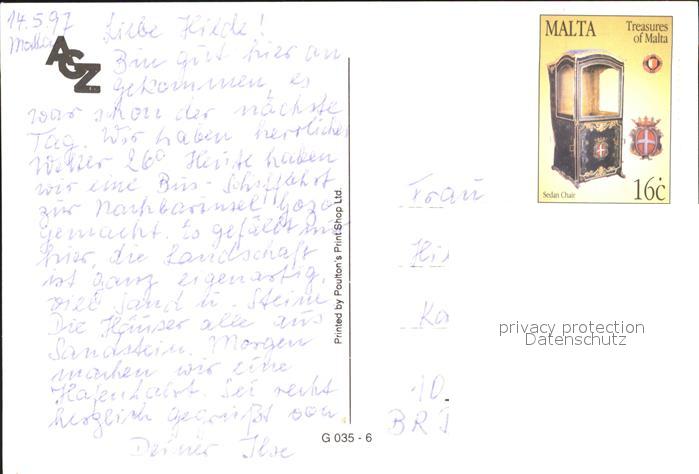 14.5.97
Malta
Liebe Hilde!
AGZ
Bin gut hier an
gekommen, es
war schon der nächste
Tag. Wir haben herrliches
Wetter 26° Heute haben
wir eine Bus-Schiffahrt
zur Nachbarinsel Gozo
gemacht. Es gefällt mir
hier, die Landschaft
ist ganz eigenartig.
viel Sand u. Steine
Die Häuser alle aus
Sandstein. Morgen
machen wir eine
Hafenfahrt. Sei recht
herzlich gegrüßt von
Deiner Ilse
Printed by Poulton's Print Shop Ltd.
G 035 - 6
MALTA
Treasures
of Malta
Sedan Chair
16c
Frau
Hil
Ka
10
BRD
privacy protection
Datenschutz